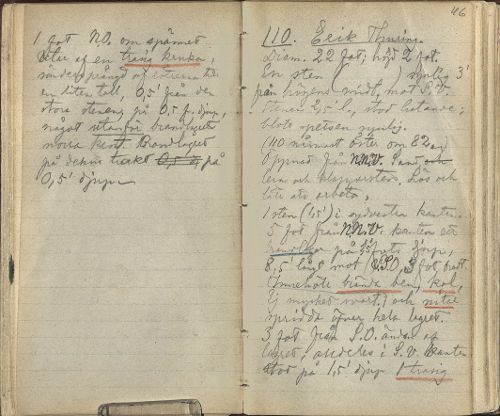 1 fot NO. om spännet
delar af en trasig kruka,
söndersprängd af rötterna till
en liten tall, 0,5' från den
stora stenen, på 0,5 f. djup,
något utanför brandlagrets
norra kant. Brandlagret
på denna trakt på
0,5' djup.
46
110. Erik Thuring.
Diam. 22 fot, höjd 2 fot.
En sten ( ) synlig 3'
från högens midt, mot S.V.
Stenen 2,5' l., stod lutande;
blott spetsen synlig.
(40 närmast öster om 82an)
Öppnad från NNV. Sand och
lera och klappersten. Lös och
lätt att arbeta.
1 sten (1,5') i sydvestra kanten.
5 fot från NNV. kanten ett
på fots djup,
8,5' långt mot OSO, 3 fot bredt.
Innehöll brända ben, kol,
(ej mycket svart) och nitar
spridda öfver hela lagret.
3 fot från S.O. ändan af
lagret, alldeles i S.V. kanten
stod på 1,5' djup 1 trasig